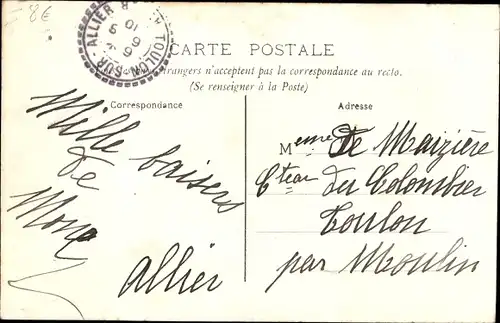 8€
TOULON-SUR-ALLIER
CARTE POSTALE
étrangers n'acceptent pas la correspondance au recto.
(Se renseigner à la Poste)
Correspondance
Mille baisers
de
Allier
Adresse
Meme De Maizière
Cteau du Colombier
Toulon
par Moulin